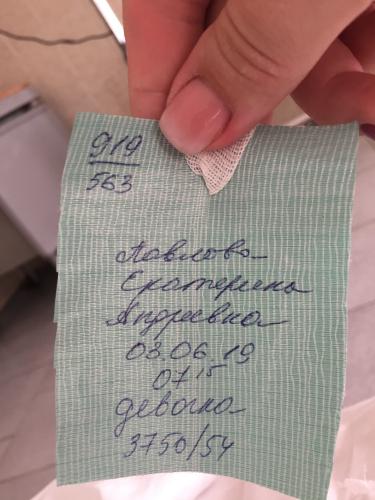 919
563
Павлова
Екатерина
Андреевна
03.06.19
07 15
девочка
3750/54